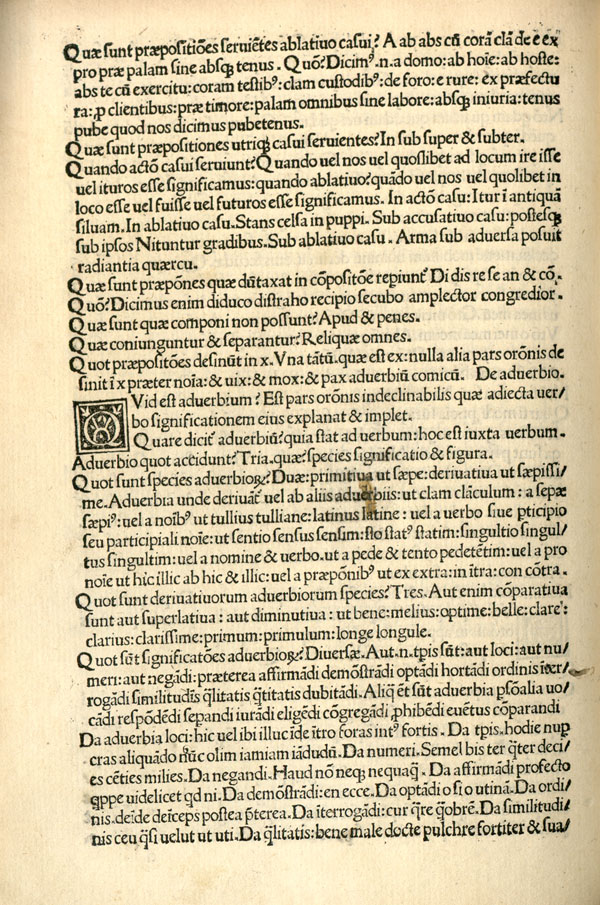 Quæ sunt præpositiões seruiẽtes ablatiuo casui? A ab abs cũ corã clã de e ex
pro præ palam sine absqꝫ tenus. Quõ? Dicimꝰ. n. a domo: ab hoĩe: ab hoste:
abs te cũ exercitu: coram testibꝰ: clam custodibꝰ: de foro: e rure: ex præfectu
ra: ꝓ clientibus: præ timore: palam omnibus sine labore: absqꝫ iniuria: tenus
pube quod nos dicimus pubetenus.
Quæ sunt præpositiones utriqꝫ casui seruientes? In sub super & subter.
Quando actõ casui seruiunt? Quando uel nos uel quoslibet ad locum ire isse
uel ituros esse significamus: quando ablatiuo? quãdo uel nos uel quolibet in
loco esse uel fuisse uel futuros esse significamus. In actõ casu: Itur ĩ antiquã
siluam. In ablatiuo casu. Stans celsa in puppi. Sub accusatiuo casu: postesqꝫ
sub ipsos Nituntur gradibus. Sub ablatiuo casu. Arma sub aduersa posuit
radiantia quærcu.
Quæ sunt præpõnes quæ dũtaxat in cõpositõe repiunt᷑ Di dis re se an & cõ.
Quõ? Dicimus enim diduco distraho recipio secubo amplector congredior.
Quæ sunt quæ componi non possunt? Apud & penes.
Quæ coniunguntur & separantur? Reliquæ omnes.
Quot præpositões desinũt in x. Vna tãtũ. quæ est ex: nulla alia pars orõnis de
sinit ĩ x præter noĩa: & uix: & mox: & pax aduerbiũ comicũ. De aduerbio.
QVid est aduerbium? Est pars orõnis indeclinabilis quæ adiecta uer/
bo significationem eius explanat & implet.
Quare dicit᷑ aduerbiũ? quia stat ad uerbum: hoc est iuxta uerbum.
Aduerbio quot accidunt? Tria. quæ? species significatio & figura.
Quot sunt species aduerbioꝝ? Duæ: primitiua ut sæpe: deriuatiua ut sæpissi/
me. Aduerbia unde deriuãt᷑ uel ab aliis aduerbiis: ut clam clãculum: a sepæ
sæpiꝰ: uel a noĩbꝰ ut tullius tulliane: latinus latine: uel a uerbo siue pticipio
seu participiali noĩe: ut sentio sensus sensim: sto statꝰ statim: singultio singul/
tus singultim: uel a nomine & uerbo. ut a pede & tento pedetẽtim: uel a pro
noĩe ut hic illic ab hic & illic: uel a præponĩbꝰ ut ex extra: in ĩtra: con cõtra.
Quot sunt deriuatiuorum aduerbiorum species? Tres. Aut enim cõparatiua
sunt aut superlatiua: aut diminutiua: ut bene: melius: optime: belle: clare:
clarius: clarissime: primum: primulum: longe longule.
Quot sũt significatões aduerbioꝝ? Diuersæ. Aut. n. tp̃is sũt: aut loci: aut nu/
meri: aut negãdi: præterea affirmãdi demõstrãdi optãdi hortãdi ordinis ĩter/
rogãdi similitudĩs q̃litatis q̃titatis dubitãdi. Aliq̃ ẽt sũt aduerbia psõalia uo/
cãdi respõdẽdi sepandi iurãdi eligẽdi cõgregãdi ꝓhibẽdi euẽtus cõparandi
Da aduerbia loci: hic uel ibi illuc ĩde ĩtro foras intꝰ fortis. Da tp̃is. hodie nup
cras aliquãdo nũc olim iamiam iãdudũ. Da numeri. Semel bis ter q̃ter deci/
es cẽties milies. Da negandi. Haud nõ neqꝫ nequaq̃. Da affirmãdi profecto
qppe uidelicet qd ni. Da demõstrãdi: en ecce. Da optãdi o si o utinã. Da ordi/
nis. deĩde deĩceps postea p̃terea. Da ĩterrogãdi: cur q̃re q̃obrẽ. Da similitudi/
nis ceu q̃si uelut ut uti. Da q̃litatis: bene male docte pulchre fortiter & sua/